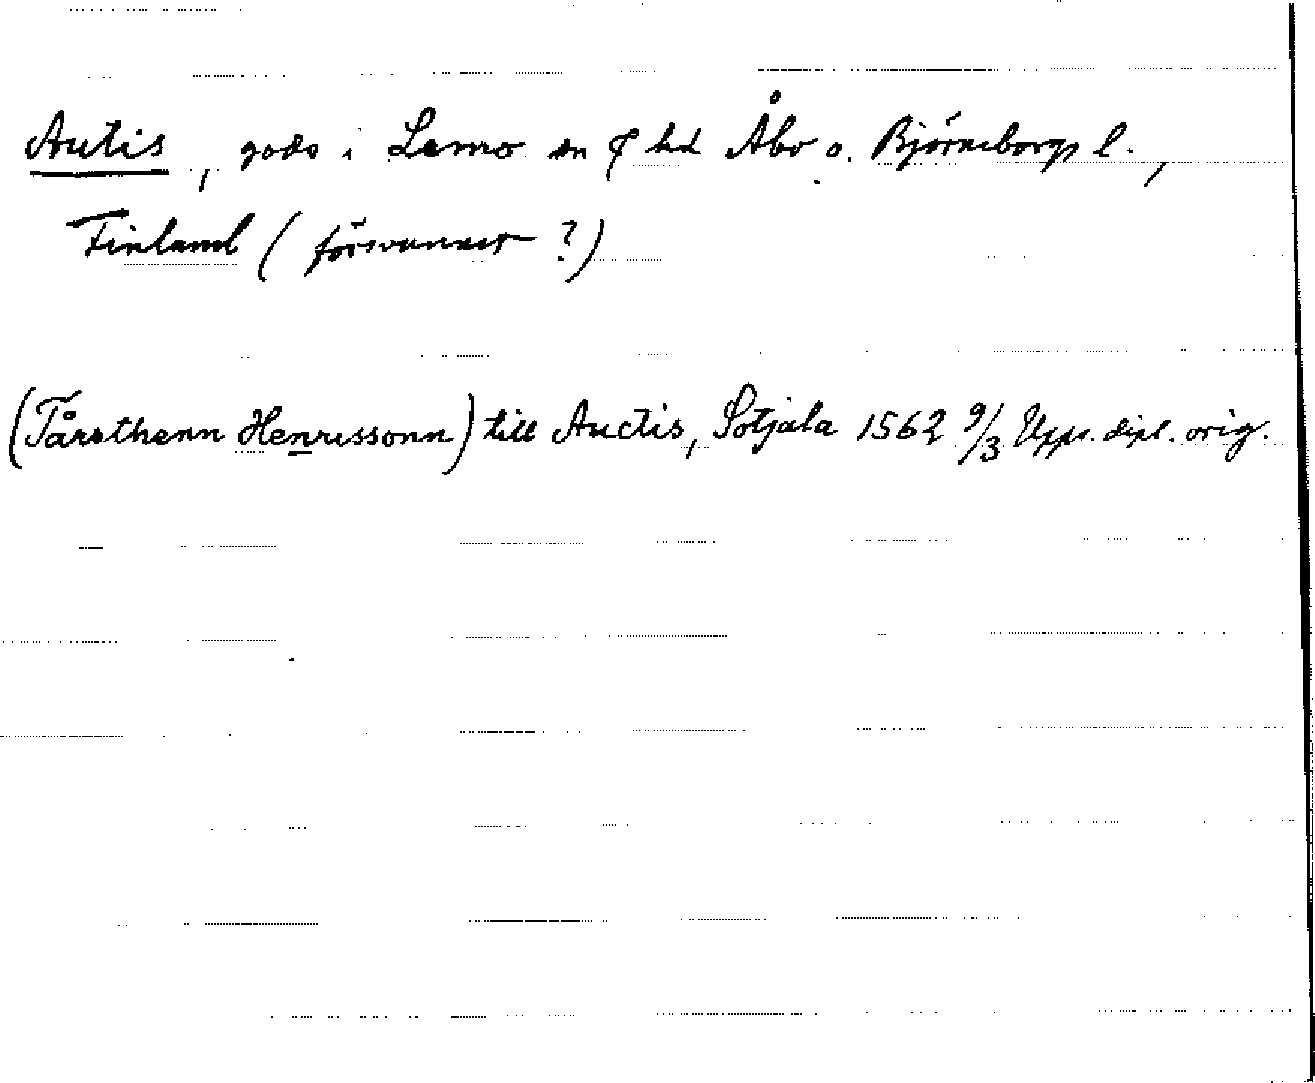 Autis, gods i Lemo sn ₵ hd Åbo o. Björneborgs l.,
Finland (försvunnet ?)
(Tårsthenn Henrissonn) till Auctis, Sotjala 1562 9/3 Upps. dipl. orig.